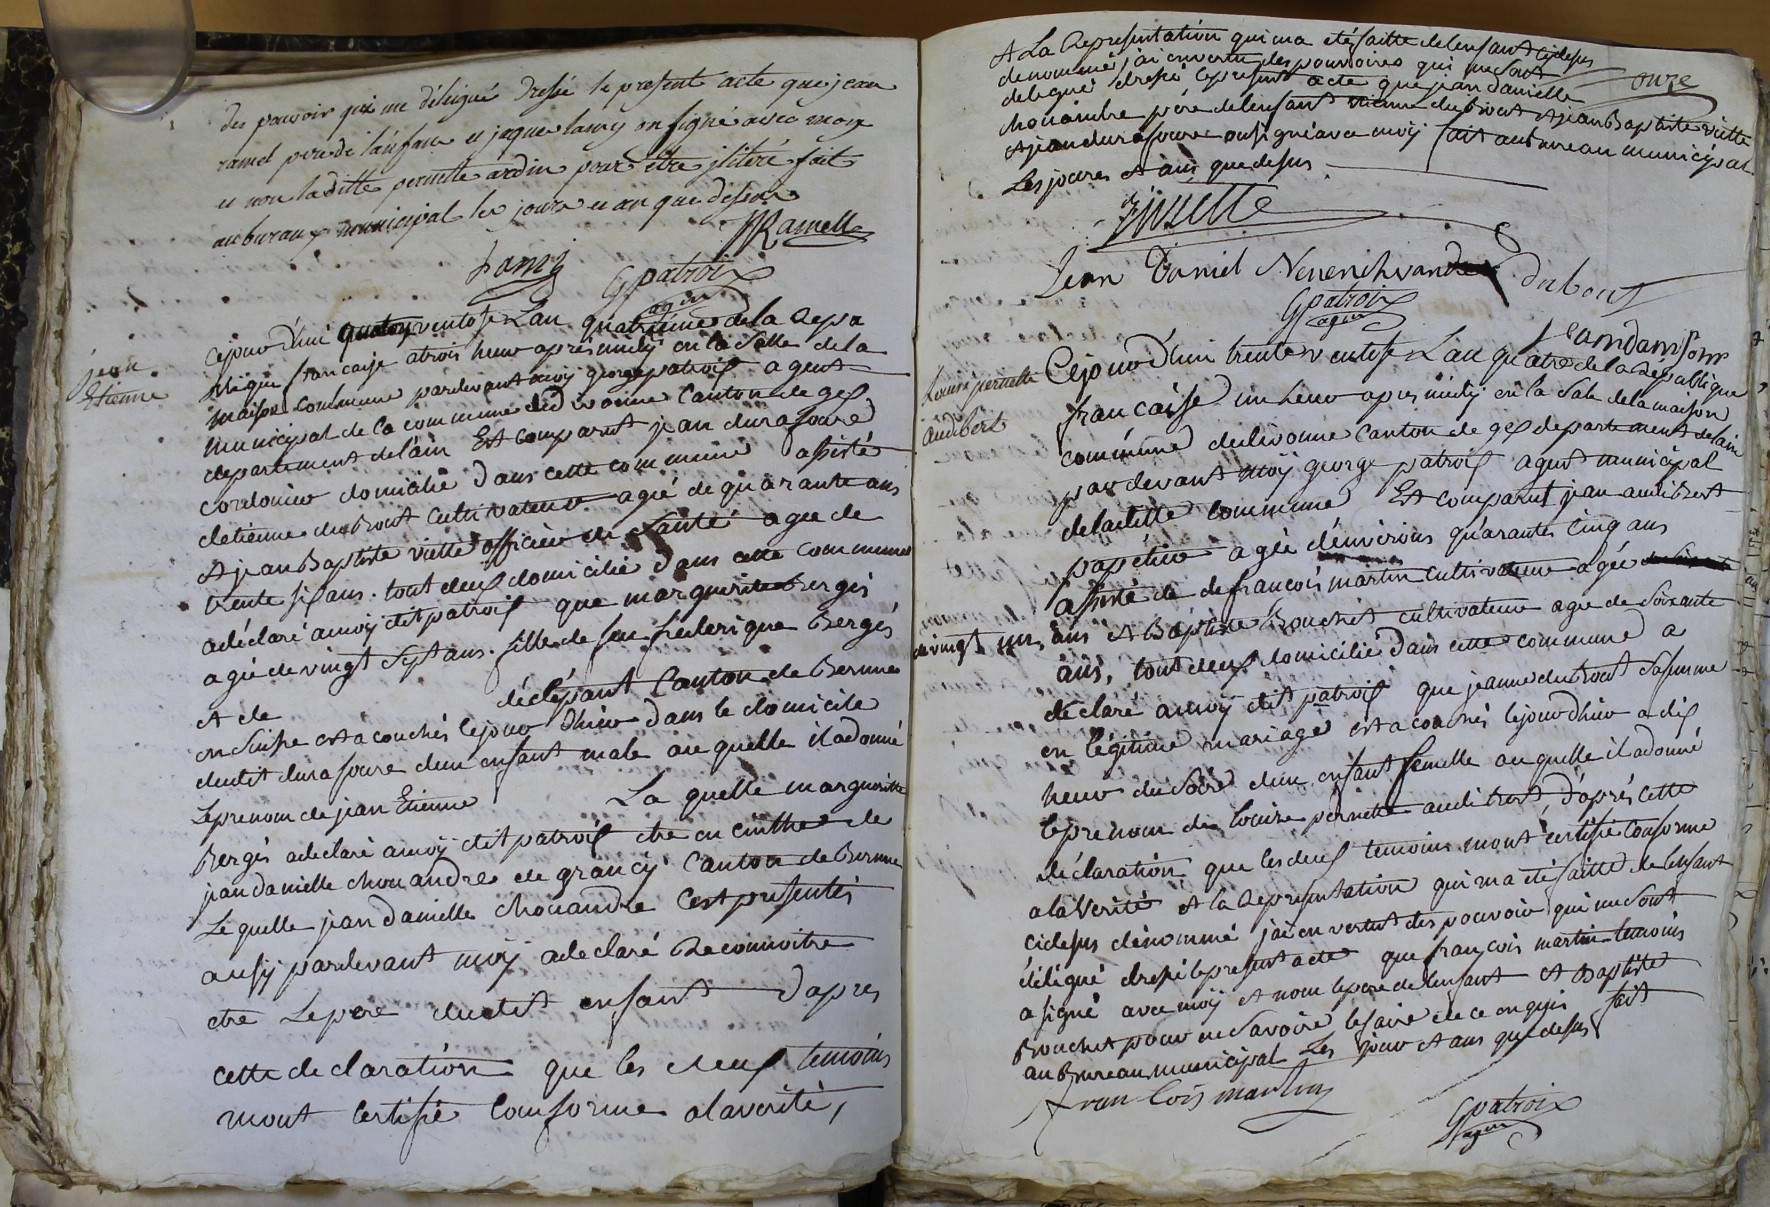 des pouvoir qui me déleigné dressé le present acte que jean
ramel pere de l'enfant et jaque lamy on signé avec moy
et non laditte pernette ardin pour être ilitéré fait
au bureaux municipal les jours et an que dessus
JRamelle
Lamy
Gpatroix
agen
jean
Etienne
Cejourd'hui quatorz ventose L'an quatrieme de la Repu
blique francaise atrois heur après midy en la Salle de la
maison commune pardevant moy george patroix agent
municipal de la commune de divonne Canton de gex
departement de l'ain Est comparut jean durafoure
cordonier domicilié dans cette commune assisté
detienne dubout cultivateur agié de quarante ans
et jean Baptiste viette officier de Santé agée de
trente six ans. tout deux domicilié dans cette commune
adéclaré amoy dit patroix que marguerite Bergés
agié de vingt Sept ans. fille de feu frederique Bergés
et de déclépant Canton de Bernne
en Suisse est acouchés lejour d'hier dans le domicile
dudit durafoure d'un enfant male au quelle il a donné
Le prenom de jean Etienne La quelle marguerite
Bergés adeclaré amoy dit patroix etre en ceinthe de
jean danielle chouandre de grancy Canton de Bernne
Le quelle jean danielle chouandre C'est presentés
ausy pardevant moy adeclaré Reconnoitre
etre Le pere dudit enfant d'apres
cette declaration que les deux temoins
mont Certifié Conforme alaverité,
onze
et La Representation qui ma eté faitte de lenfant cidesus
denommé j'ai en vertu des pouvoires qui me sont
delegué dressé le present acte que jean danielle
chouandre père de lenfant etienne dubout et jean Baptiste viette
et jean durafoure on signé avec moy fait au bureau municipal
Les jours et ans que desus
Viette
Jean Daniel Nenenchvander dubout
Gpatroix
agen
Louise pernette
audibert
Cejourd'hui trente ventose L'an quatre de la Republique
francaise un heur apres midy en la Sale de la maison
commune de divonne canton de gex departement de lain
par devant moy george patroix agent municipal
de laditte commune Est comparut jean audibert
papetier agié d'environs quarantes Cinq ans
assisté de de francois martin cultivateur agée
de vingt un, ans et Baptiste Bouchet cultivateur agée de Soixante
ans, tout deux domicilié dans cette commune a
déclaré amoy dit patroix que jeanne dubout Safemme
en légitime mariage est acouchés lejour d'hier a dix
heur du Soire d'un enfant femelle au quelle il adonné
le prenom de louise pernette audibert, d'après cette
déclaration que les deux temoins mont certifié conforme
ala Verité et la Representation qui ma eté faitte de lenfant
cidesus dénommé j'ai en vertut des pouvoir qui me Sont
délégué dressé le present acte que françois martin temoins
a signé avec moy et nom le pere de lenfant et Baptiste
Bouchet pour ne Savoire le faire de ce enquis fait
au Bureau municipal Les jour et ans que desus
francois martin
Gpatroix
agen